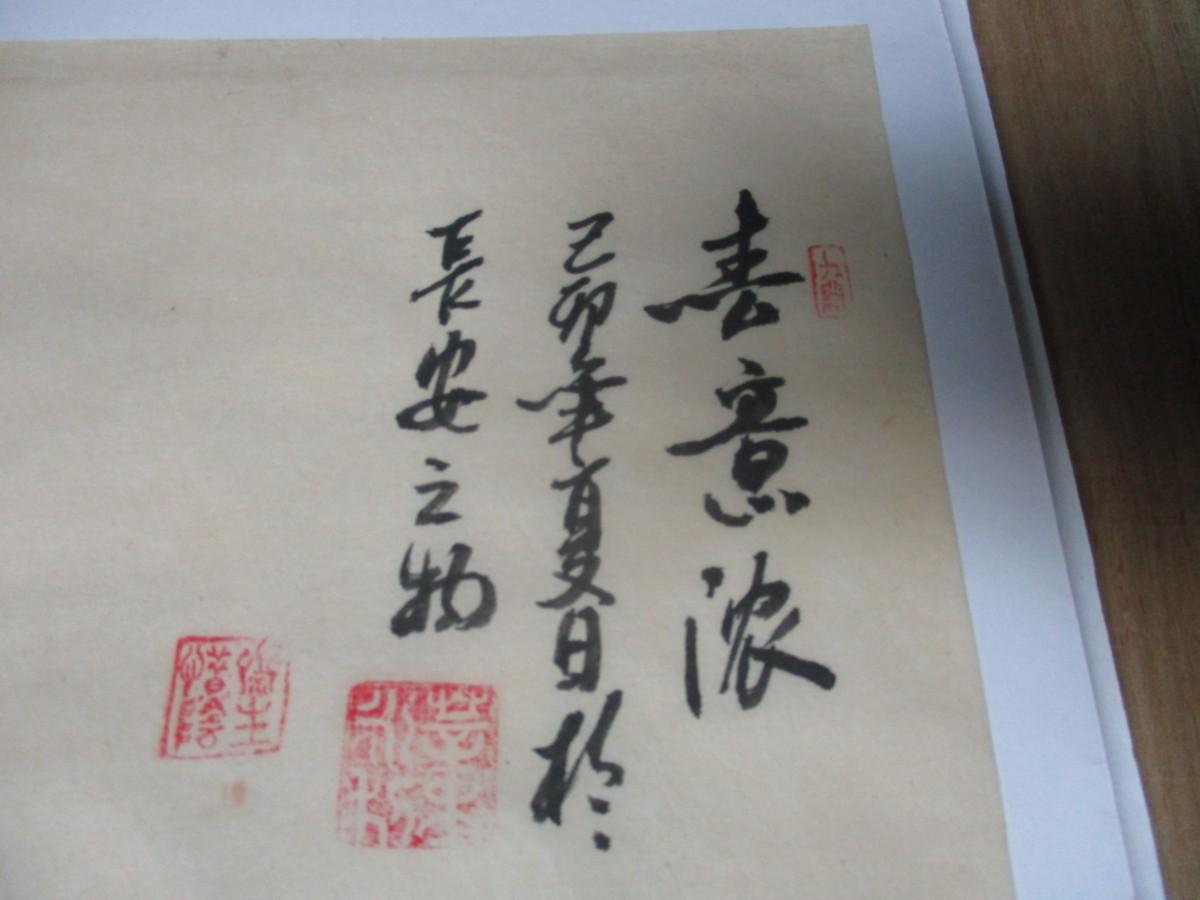 春意浓
己卯年夏日於
長安之物